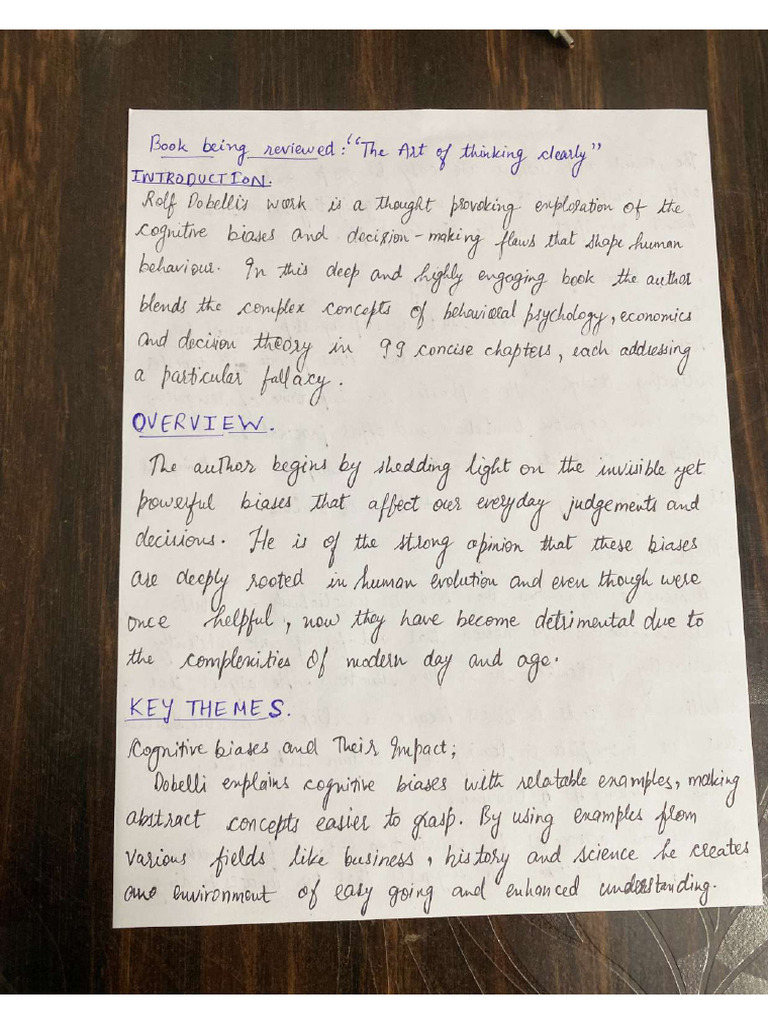 Book being reviewed: "The Art of thinking clearly"
INTRODUCTION.
Rolf Dobelli's work is a thought provoking exploration of the
cognitive biases and decision-making flaws that shape human
behaviour. In this deep and highly engaging book the author
blends the complex concepts of behavioral psychology, economics
and decision theory in 99 concise chapters, each addressing
a particular fallaxy.
OVERVIEW.
The author begins by shedding light on the invisible yet
powerful biases that affect our everyday judgements and
decisions. He is of the strong opinion that these biases
are deeply rooted in human evolution and even though were
once helpful, now they have become detrimental due to
the complexities of modern day and age.
KEY THEMES.
Cognitive biases and Their Impact;
Dobelli explains cognitive biases with relatable examples, making
abstract concepts easier to grasp. By using examples from
various fields like business, history and science he creates
environment of easy going and enhanced understanding.